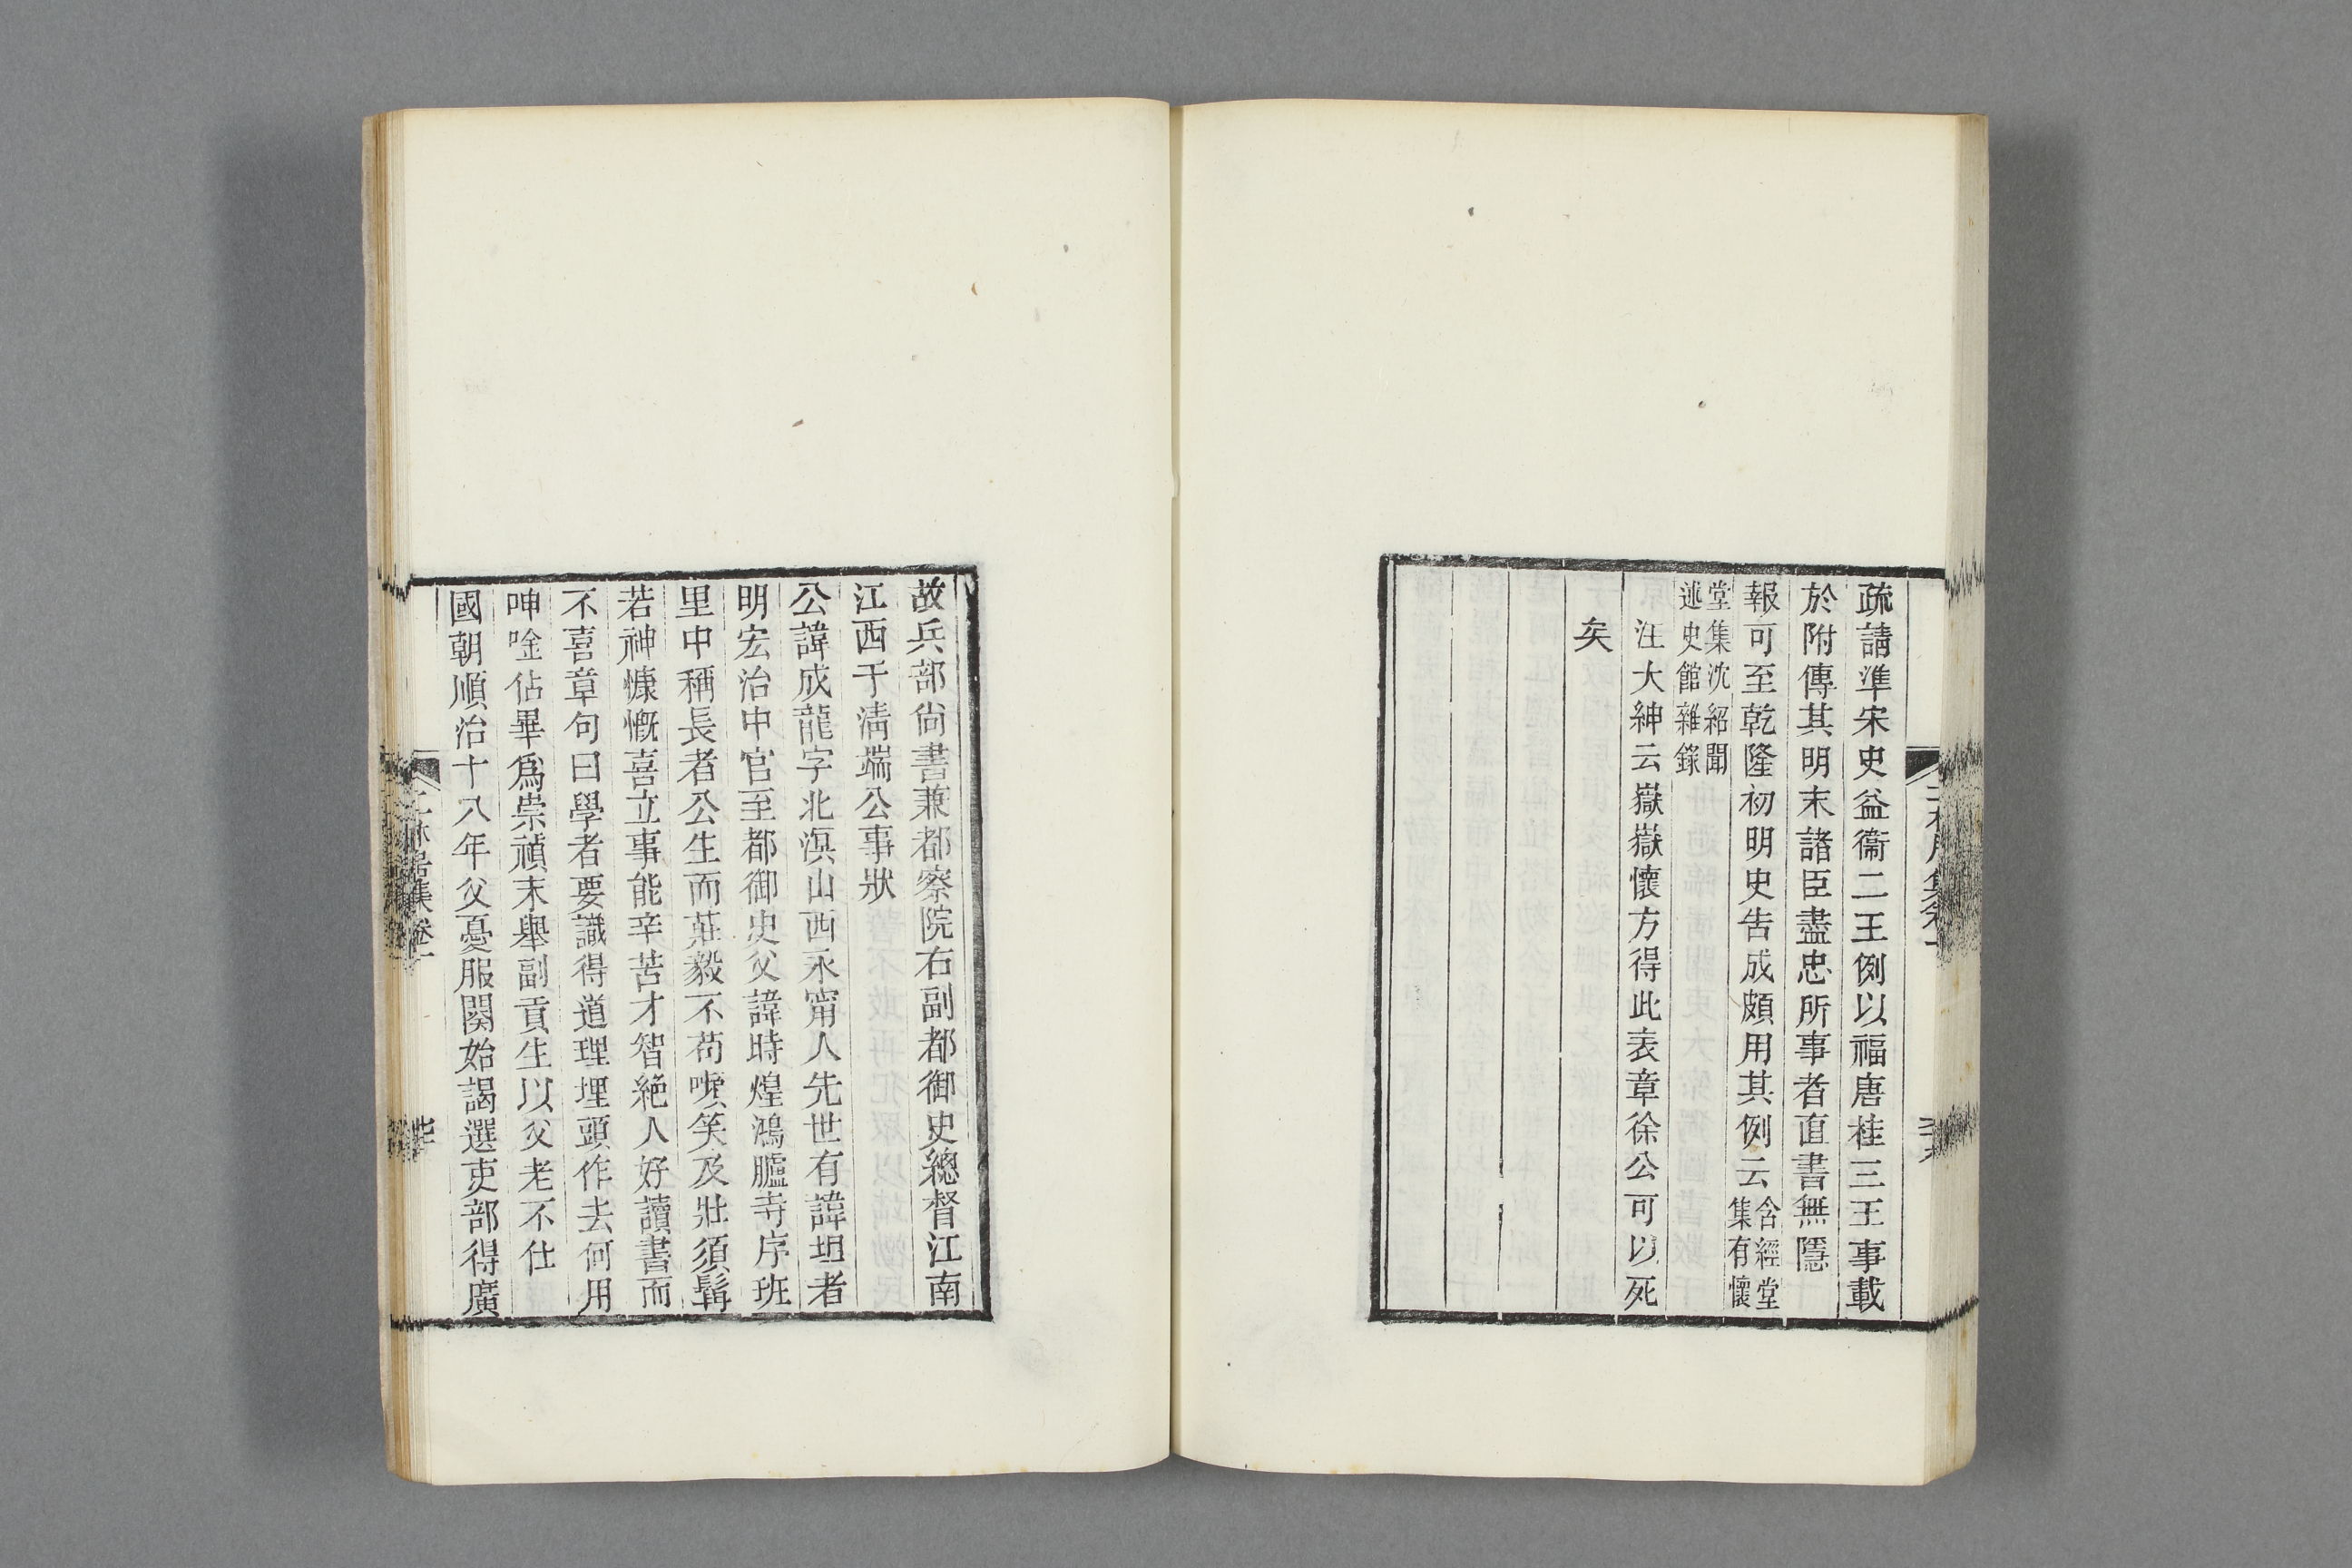 疏請準宋史益衞二王例以福唐桂三王事載
於附傳其明末諸臣盡忠所事者直書無隱
報可至乾隆初明史告成頗用其例云含經堂集有懷
堂集沈紹聞述史館雜錄
汪大紳云嶽嶽懷方得此表章徐公可以死
矣
故兵部尙書兼都察院右副都御史總督江南
江西于淸端公事狀
公諱成龍字北溟山西永甯人先世有諱坦者
明宏治中官至都御史父諱時煌鴻臚寺序班
里中稱長者公生而莊毅不苟嚬笑及壯須髯
若神慷慨喜立事能辛苦才智絕人好讀書而
不喜章句曰學者要識得道理埋頭作去何用
呻唫佔畢爲崇禎末舉副貢生以父老不仕
國朝順治十八年父憂服闋始謁選吏部得廣
二林居集卷